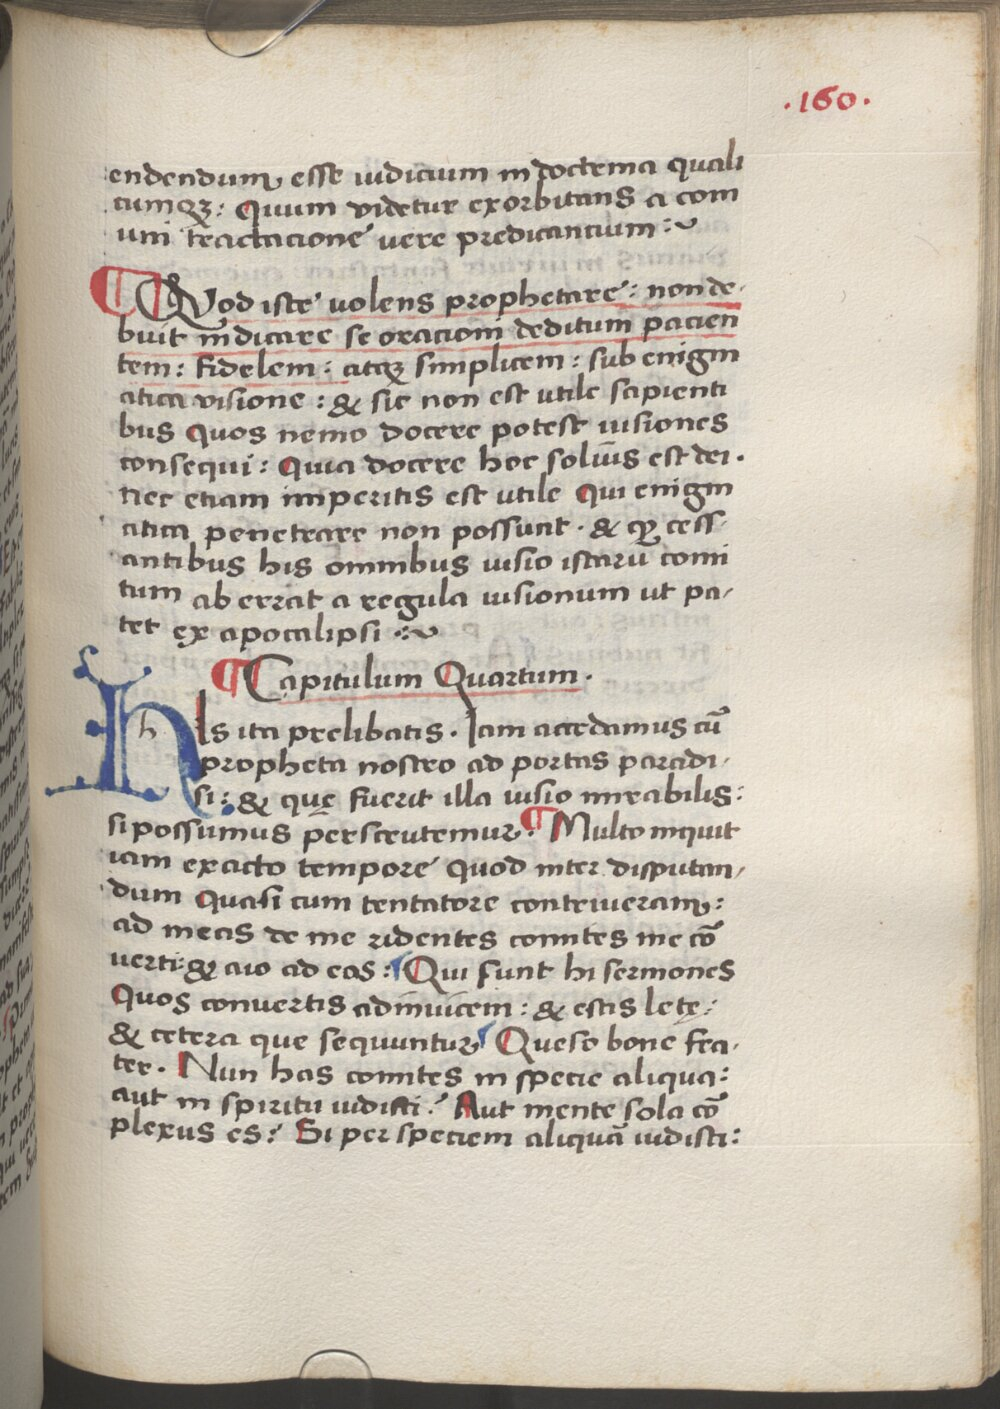 .160.
endendum esse iudicium in doctrina quali
cumqꝫ: Quum videtur exorbitans a com
uni tractacione vere predicantium:~
¶ Quod iste volens prophetare: non de-
buit indicare se oracioni deditum pacien
tem: fidelem: atqꝫ simplicem: sub enigm
atica visione: & sic non est utile sapienti
bus Quos nemo docere potest visiones
consequi: Quia docere hoc soliũs est dei.
nec etiam imperitis est utile Qui enigm
atica penetrare non possunt. & qꝫ cess-
antibus his omnibus visio istarũ comi
tum aberrat a regula visionum ut pa-
tet ex apocalipsi :~
¶ Capitulum Quartum.
His ita prelibatis. Iam accedamus cũ
propheta nostro ad portas paradi-
si: & quę fuerit illa visio mirabilis:
si possumus perscrutemur. ¶ Multo inquit
iam exacto tempore Quod inter disputan-
dum Quasi cum tentatore contriveram:
ad meas de me ridentes comites me cõ
verti: & aio ad eas: Qui sunt hi sermones
Quos convertis adinvicem: & estis letę:
& cetera que sequuntur Queso bone fra-
ter. Nun has comites in specie aliqua:
aut in spiritu vidisti? Aut mente sola cõ
plexus es? Si per speciem aliquã vidisti: